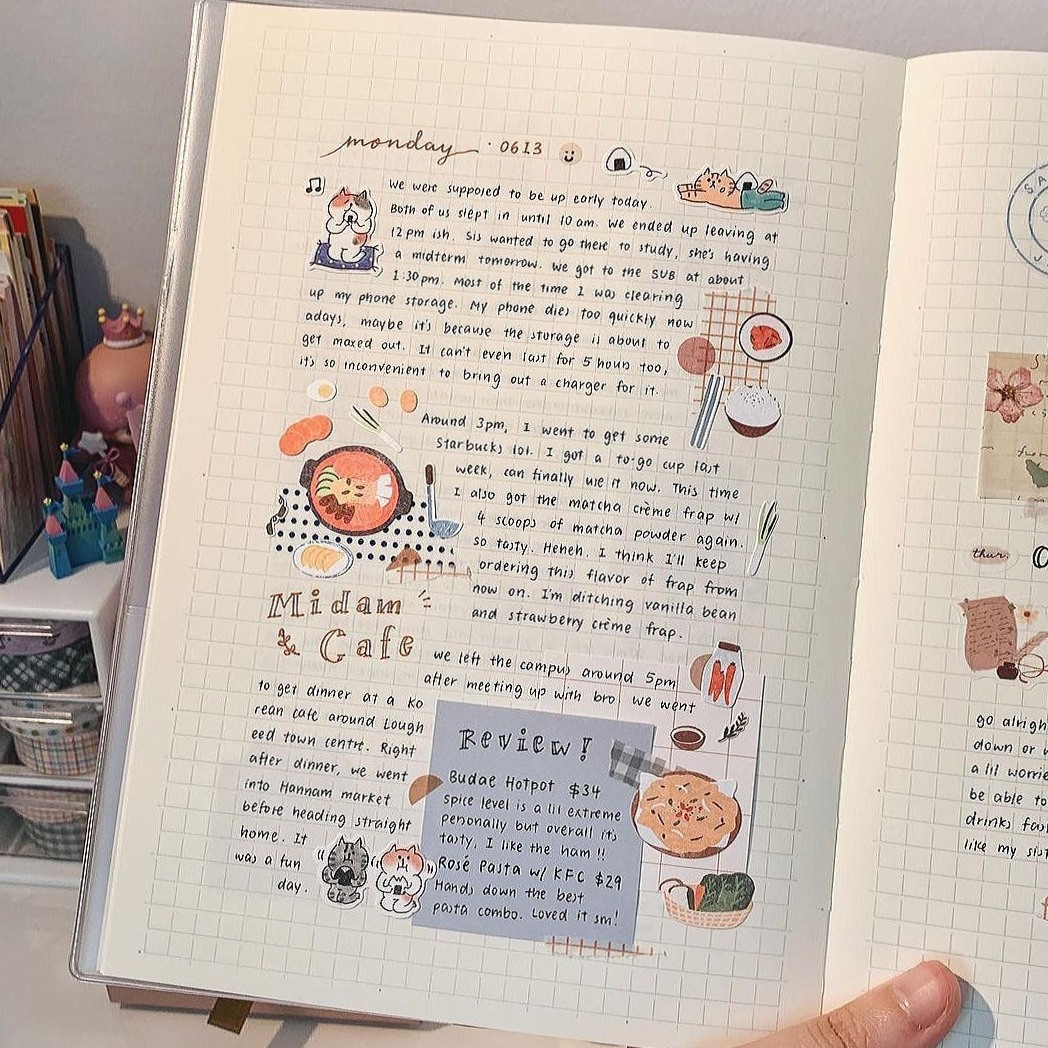 monday · 0613
We were supposed to be up early today.
Both of us slept in until 10 am. We ended up leaving at
12 pm ish. Sis wanted to go there to study, she's having
a midterm tomorrow. We got to the SUB at about
1:30 pm. Most of the time I was clearing
up my phone storage. My phone dies too quickly now
adays, maybe it's because the storage is about to
get maxed out. It can't even last for 5 hours too,
it's so inconvenient to bring out a charger for it.
Around 3pm, I went to get some
Starbucks lol. I got a to-go cup last
week, can finally use it now. This time
I also got the matcha crème frap w/
4 scoops of matcha powder again.
so tasty. Heheh. I think I'll keep
ordering this flavor of frap from
now on. I'm ditching vanilla bean
and strawberry crème frap.
Midam
& Cafe
We left the campus around 5pm
after meeting up with bro. We went
to get dinner at a Ko
rean cafe around Lough
eed town centre. Right
after dinner, we went
into Hannam market
before heading straight
home. It
was a fun
day.
Review!
Budae Hotpot $34
Spice level is a lil extreme
personally but overall it's
tasty, I like the ham!!
Rosé Pasta w/ KFC $29
Hands down the best
pasta combo. Loved it sm!
thur.
go alrigh
down or
a lil worrie
be able to
drinks
like my sis